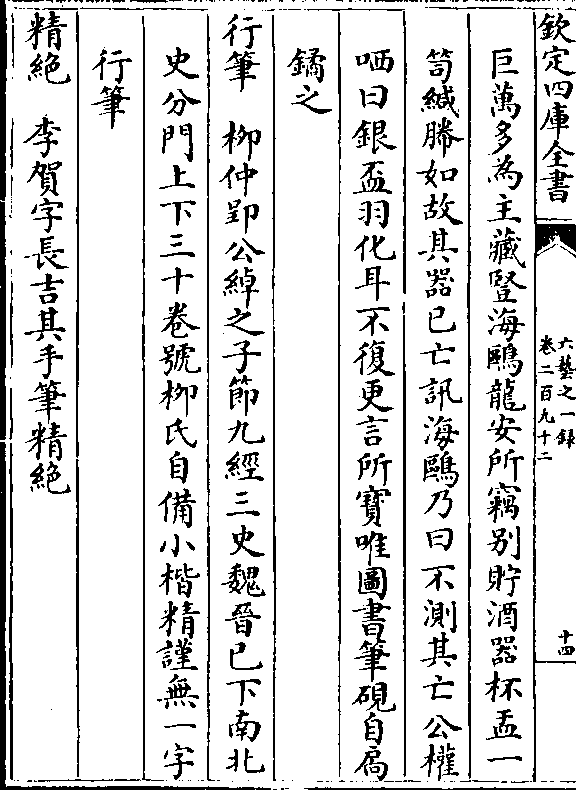 欽定四庫全書
六藝之一錄
卷二百九十二
十四
巨萬多為主藏豎海鷗龍安所竊别貯酒器杯盂一
笥緘縢如故其器已亡訊海鷗乃曰不測其亡公權
哂曰銀盃羽化耳不復更言所寶唯圖書筆硯自扄
鐍之
行筆　柳仲郢公綽之子節九經三史魏晉已下南北
史分門上下三十卷號柳氏自備小楷精謹無一字
行筆
精絶　李賀字長吉其手筆精絶